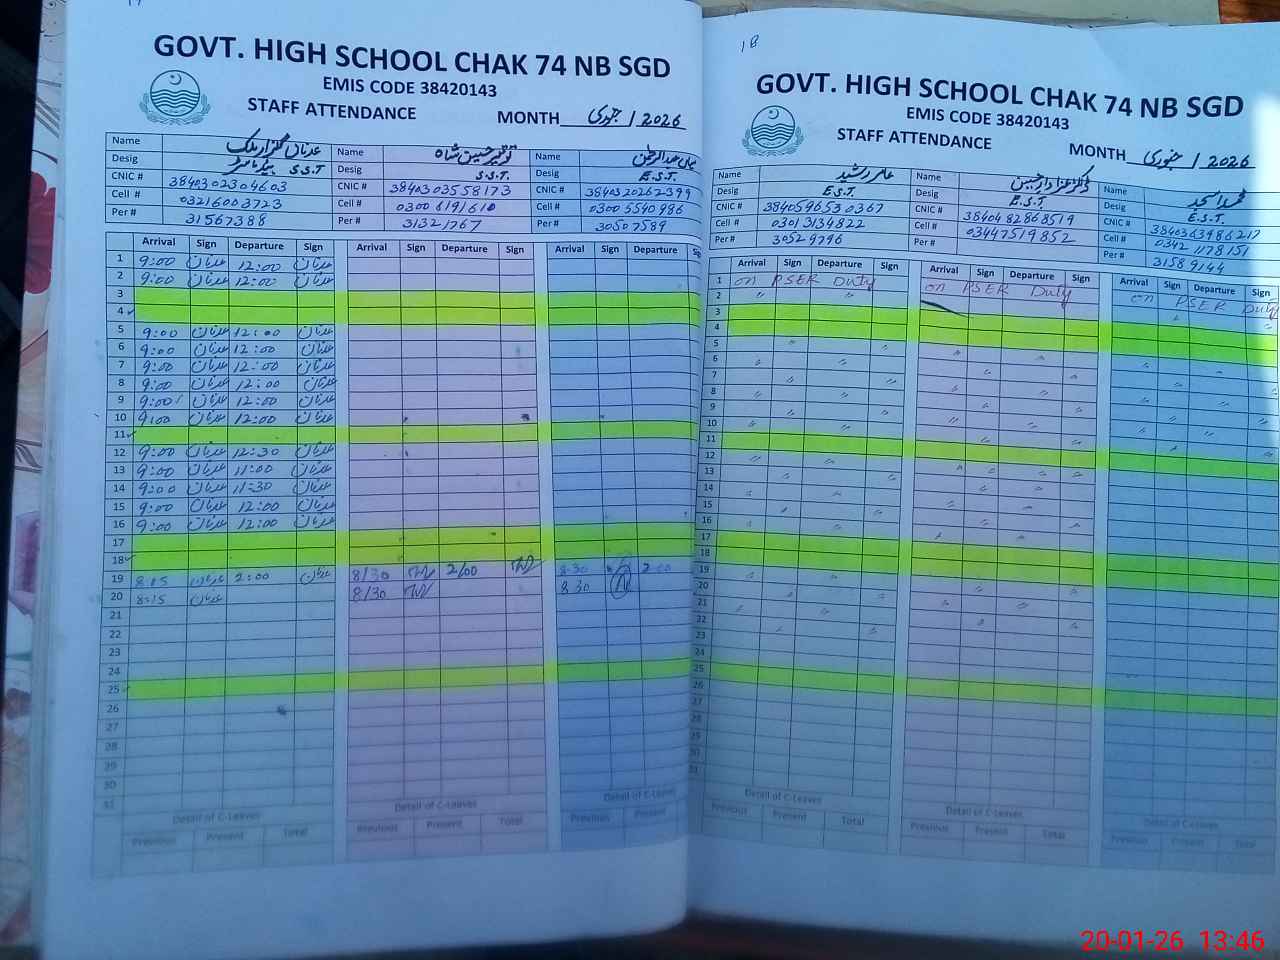 17
GOVT. HIGH SCHOOL CHAK 74 NB SGD
EMIS CODE 38420143
STAFF ATTENDANCE MONTH جنوری / 2026
Name عدنان گلزار ملک Name توقیر حسین شاہ Name میاں عبدالرحمٰن
Desig ہیڈ ماسٹر S.S.T Desig S.S.T. Desig E.S.T.
CNIC # 3840302304603 CNIC # 3840303558173 CNIC # 3840320262399
Cell # 03216003723 Cell # 03006191610 Cell # 03005540986
Per # 31567388 Per # 31321767 Per # 30507589
Arrival Sign Departure Sign Arrival Sign Departure Sign Arrival Sign Departure
1 9:00 عدنان 12:00 عدنان
2 9:00 عدنان 12:00 عدنان
3
4
5 9:00 عدنان 12:00 عدنان
6 9:00 عدنان 12:00 عدنان
7 9:00 عدنان 12:00 عدنان
8 9:00 عدنان 12:00 عدنان
9 9:00 عدنان 12:00 عدنان
10 9:00 عدنان 12:00 عدنان
11
12 9:00 عدنان 12:30 عدنان
13 9:00 عدنان 11:00 عدنان
14 9:00 عدنان 11:30 عدنان
15 9:00 عدنان 12:00 عدنان
16 9:00 عدنان 12:00 عدنان
17
18
19 8:05 عدنان 2:00 عدنان 8/30 2/00 8:30 2:00
20 8:15 عدنان 8/30 8:30
21
22
23
24
25
26
27
28
29
30
31
Detail of C-Leaves Detail of C-Leaves Detail of C-Leaves
Previous Present Total Previous Present Total Previous Present
18
GOVT. HIGH SCHOOL CHAK 74 NB SGD
EMIS CODE 38420143
STAFF ATTENDANCE MONTH جنوری / 2026
Name عامر رشید Name Name محمد اسجد
Desig E.S.T. Desig E.S.T. Desig E.S.T.
CNIC # 3840596530367 CNIC # 3840482868519 CNIC # 3840363986217
Cell # 03013134822 Cell # 03447519852 Cell # 03421178151
Per # 30529796 Per # Per # 31589144
Arrival Sign Departure Sign Arrival Sign Departure Sign Arrival Sign Departure Sign
1 on PSER Duty on PSER Duty on PSER Duty
2 〃 〃
3
4
5
6
7
8
9
10
11
12
13
14
15
16
17
18
19
20
21
22
23
25
26
27
28
29
30
31
Detail of C-Leaves Detail of C-Leaves Detail of C-Leaves
Previous Present Total Previous Present Total Previous Present Total
20-01-26 13:46